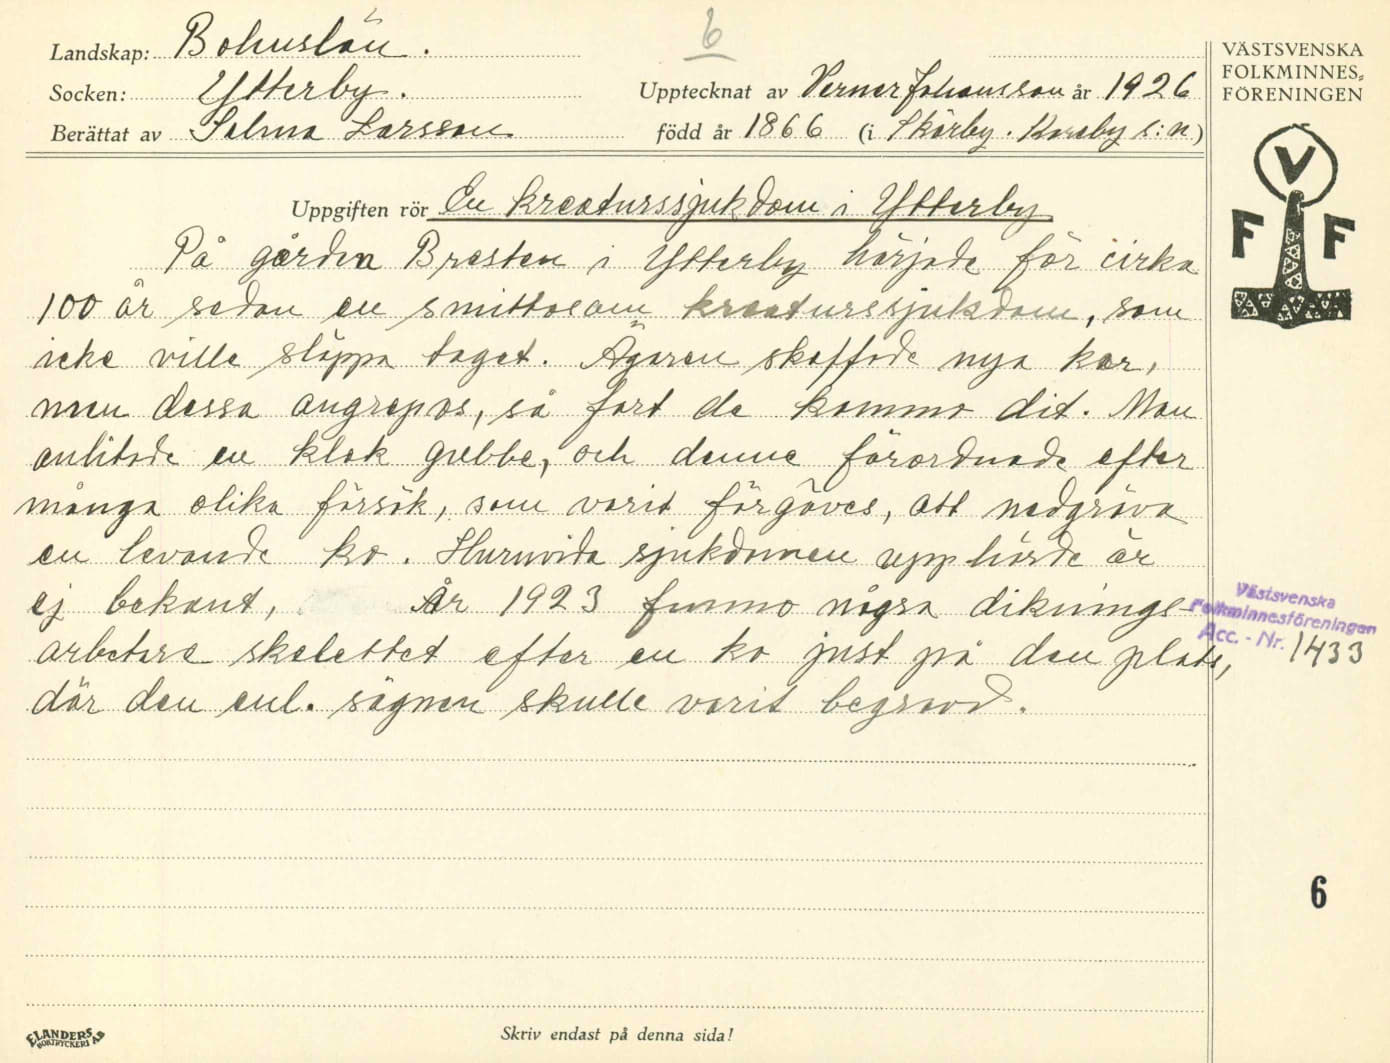 6
Landskap: Bohuslän.
Socken: Ytterby.
Upptecknat av Verner Johansson år 1926
Berättat av Selma Larsson
född år 1866 (i Skårby. Kareby s:n)
VÄSTSVENSKA
FOLKMINNES-
FÖRENINGEN
V
F F
Uppgiften rör En kreaturssjukdom i Ytterby
På gården Brasten i Ytterby härjade för cirka
100 år sedan en smittosam kreaturssjukdom, som
icke ville släppa taget. Ägaren skaffade nya kor,
men dessa angrepos, så fort de kommo dit. Man
anlitade en klok gubbe, och denne förordnade efter
många olika försök, som varit förgäves, att nedgräva
en levande ko. Huruvida sjukdomen upphörde är
ej bekant, År 1923 funno några diknings-
arbetare skelettet efter en ko just på den plats,
där den enl. sägnen skulle varit begravd.
Västsvenska
Folkminnesföreningen
Acc. - Nr. 1433
6
ELANDERS
BOKTRYCKERI AB
Skriv endast på denna sida!